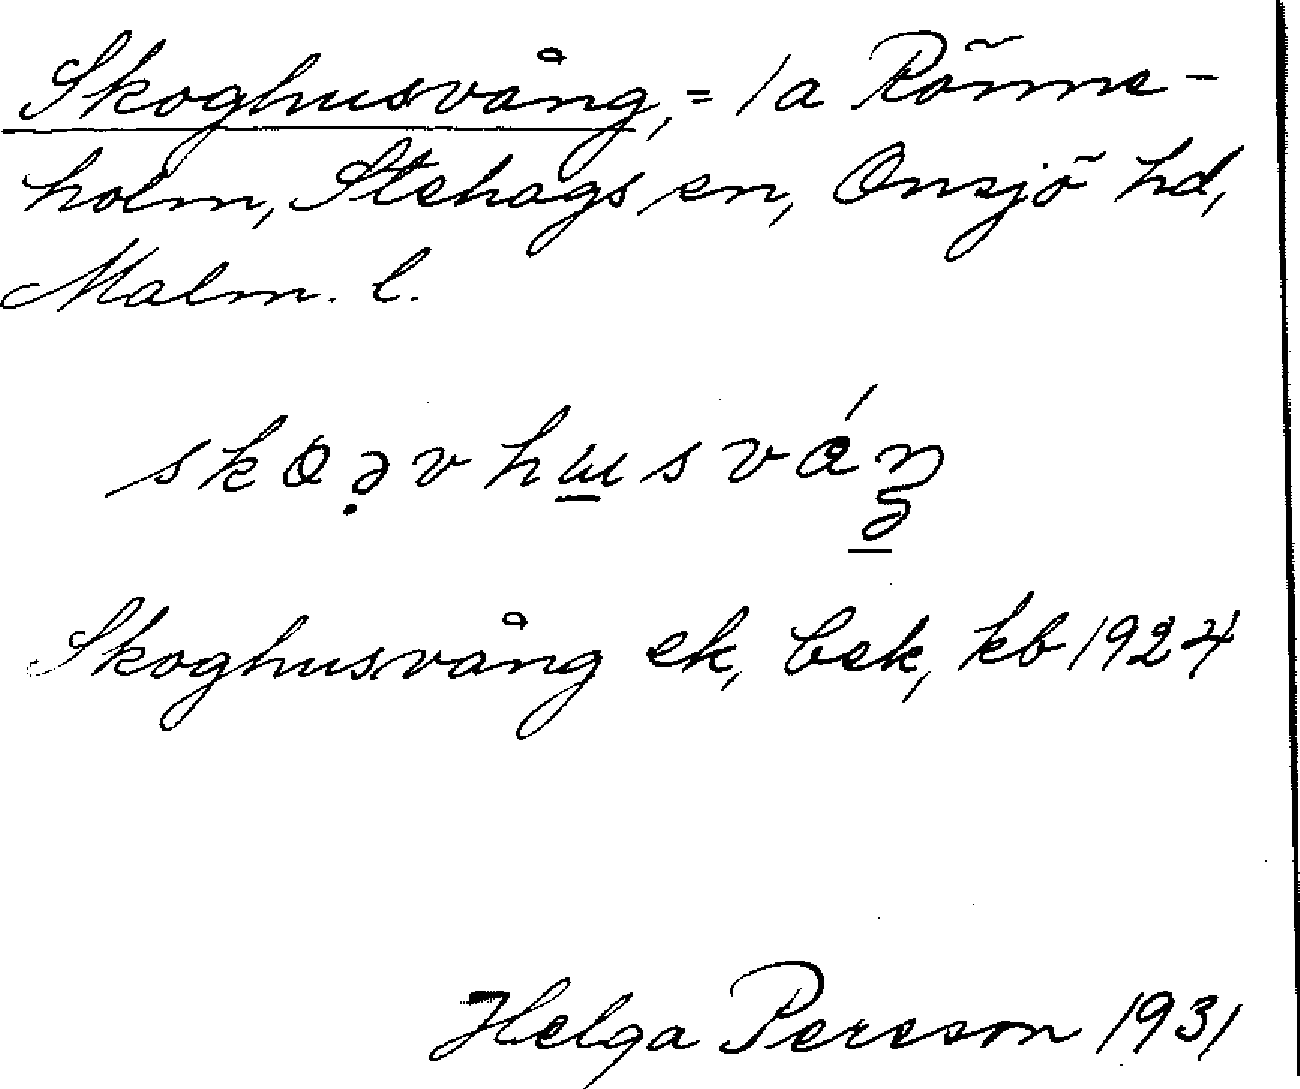 Skoghusvång, = 1a Rönne-
holm, Stehags sn, Onsjö hd,
Malm. l.
Skoghusvång ek, bek, kb 1924
Helga Persson 1931